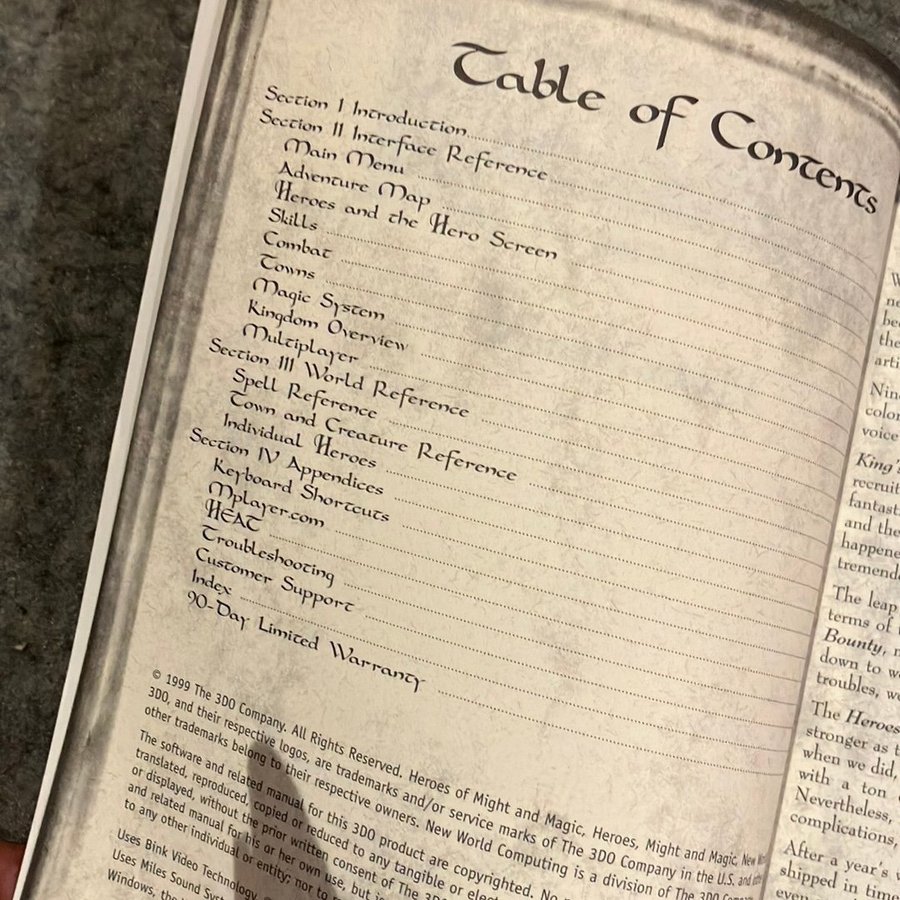 Table of Contents
Section I Introduction
Section II Interface Reference
Main Menu
Adventure Map
Heroes and the Hero Screen
Skills
Combat
Towns
Magic System
Kingdom Overview
Multiplayer
Section III World Reference
Spell Reference
Town and Creature Reference
Individual Heroes
Section IV Appendices
Keyboard Shortcuts
Mplayer.com
HEAT
Troubleshooting
Customer Support
Index
90-Day Limited Warranty
© 1999 The 3DO Company. All Rights Reserved. Heroes of Might and Magic, Heroes, Might and Magic, New
3DO, and their respective logos, are trademarks and/or service marks of The 3DO Company in the U.S. and
other trademarks belong to their respective owners. New World Computing is a division of The 3DO
The software and related manual for this 3DO product are copyrighted. No
translated, reproduced, copied or reduced to any tangible or
or displayed, without the prior written consent of The
and related manual for his or her own use, but
to any other individual or entity; nor to
Uses Bink Video Technology
Uses Miles Sound
Windows, the
King's
recruit
and the
The leap
terms of
Bounty,
down to
troubles,
The Heroes
stronger as
when we did,
with a ton
Nevertheless,
complications,
After a year's
shipped in time